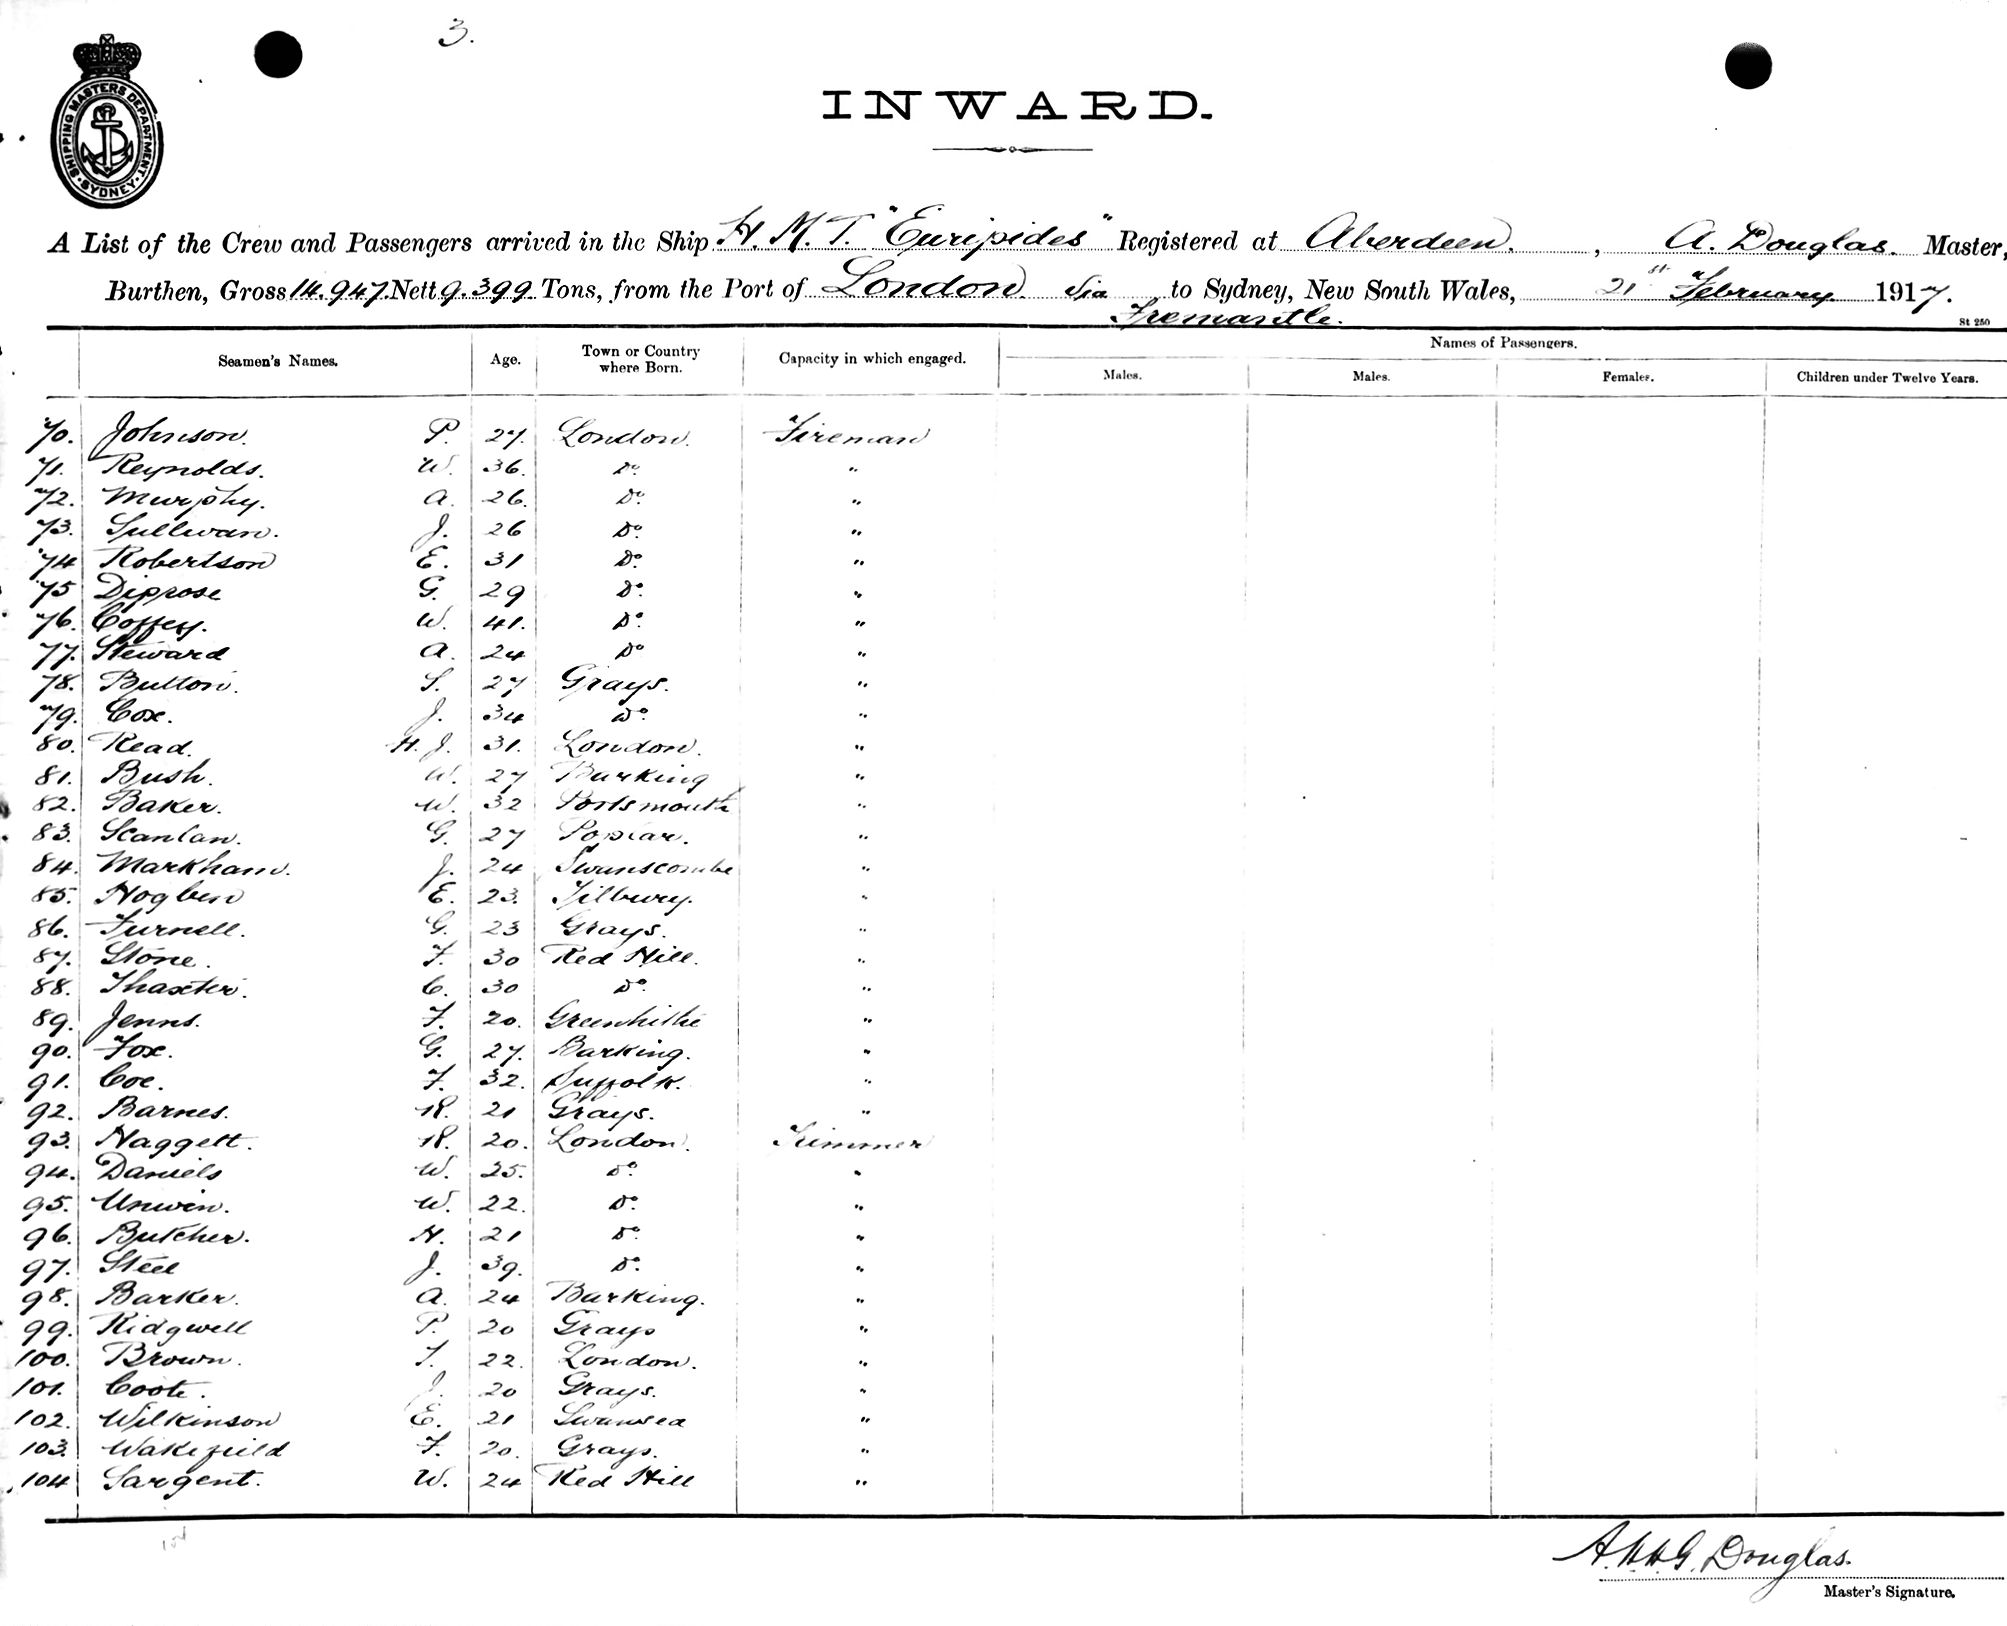 3.
SHIPPING MASTERS DEPARTMENT
SYDNEY
INWARD.
A List of the Crew and Passengers arrived in the Ship H.M.T. "Euripides" Registered at Aberdeen. , A. Douglas. Master,
Burthen, Gross 14.947. Nett 9.399 Tons, from the Port of London via to Sydney, New South Wales, 21st February 1917.
Fremantle.
St 250
Seamen's Names. Age. Town or Country where Born. Capacity in which engaged. Names of Passengers.
Males. Males. Females. Children under Twelve Years.
70. Johnson. P. 27. London. Fireman
71. Reynolds. W. 36. Do. "
72. Murphy. A. 26. Do. "
73. Sullivan. J. 26 Do. "
74 Robertson E. 31 Do. "
75 Diprose G. 29 Do. "
76. Coffey. W. 41. Do. "
77. Steward A. 24 Do "
78. Button. S. 27 Grays. "
79. Cox. J. 34 Do. "
80. Read. H. J. 31. London. "
81. Bush. W. 27 Barking "
82. Baker. W. 32 Portsmouth "
83. Scanlan. G. 27 Poplar. "
84. Markham. J. 24 Swanscombe "
85. Hogben E. 23. Tilbury. "
86. Furnell. G. 23 Grays. "
87. Stone. F. 30 Red Hill. "
88. Thaxter. C. 30 Do. "
89. Jenns. F. 20. Greenhithe "
90. Fox. G. 27. Barking. "
91. Coe. F. 32. Suffolk. "
92. Barnes. R. 21 Grays. "
93. Haggett. R. 20. London. Trimmer
94. Daniels W. 25. Do. "
95. Unwin. W. 22. Do. "
96. Butcher. H. 21 Do. "
97. Steel J. 39. Do. "
98. Barker. A. 24 Barking. "
99. Ridgwell P. 20 Grays "
100. Brown. T. 22. London. "
101. Coote. J. 20 Grays. "
102. Wilkinson E. 21 Swansea "
103. Wakefield F. 20. Grays. "
104 Sargent. W. 24 Red Hill "
A.H.H.G. Douglas.
Master's Signature.